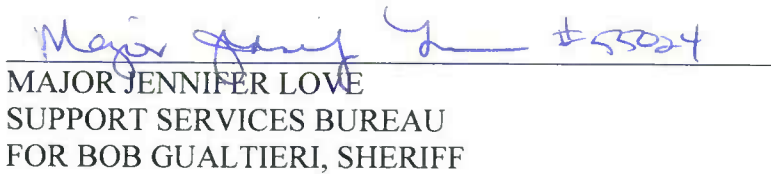 Major Jennifer L #53024
MAJOR JENNIFER LOVE
SUPPORT SERVICES BUREAU
FOR BOB GUALTIERI, SHERIFF